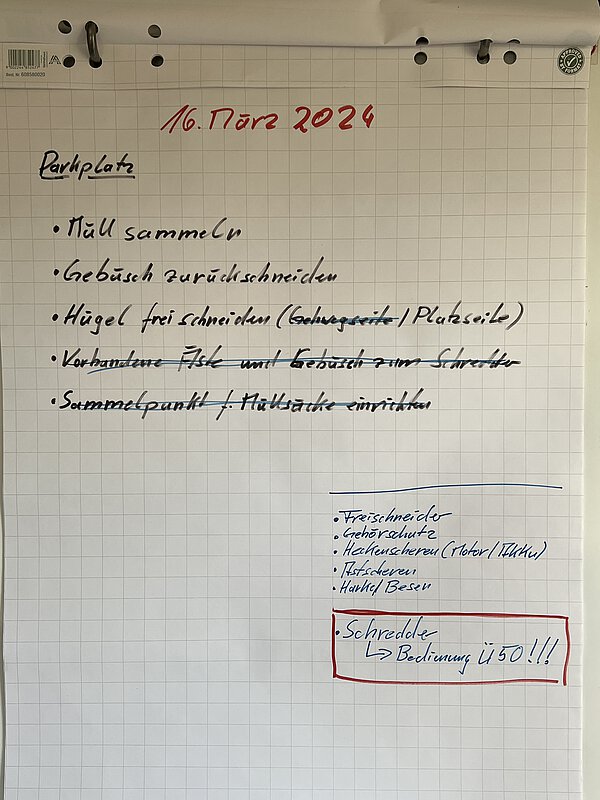 Best. Nr. 608580020
16. März 2024
Parkplatz
• Müll sammeln
• Gebüsch zurückschneiden
• Hügel frei schneiden (Gehwegseite / Platzseite)
• Vorhandene Äste und Gebüsch zum Schredder
• Sammelpunkt f. Müllsäcke einrichten
• Freischneider
• Gehörschutz
• Heckenscheren (Motor / Akku)
• Astscheren
• Harke / Besen
• Schredder
↳ Bedienung Ü50!!!